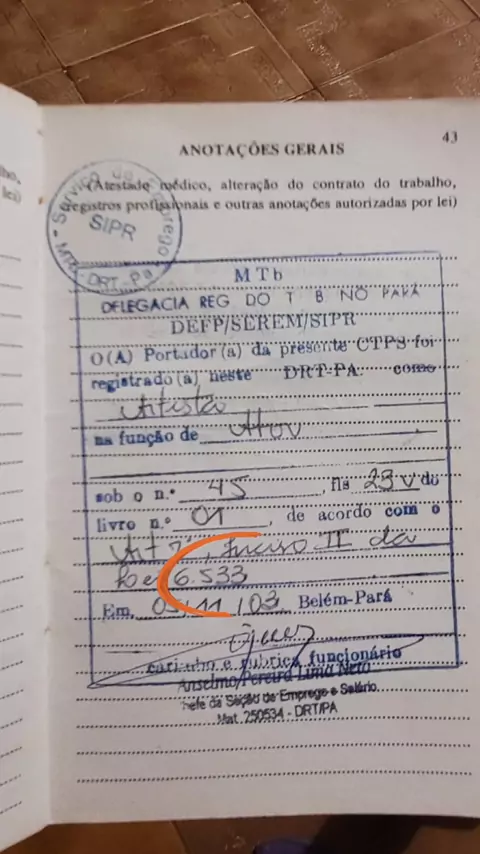 43
ANOTAÇÕES GERAIS
(Atestado médico, alteração do contrato do trabalho,
registros profissionais e outras anotações autorizadas por lei)
Serviço de Emprego
SIPR
MTb-DRT-Pa
MTb
DELEGACIA REG DO T B NO PARÁ
DEFP/SEREM/SIPR
O(A) Portador(a) da presente CTPS foi
registrado(a) neste DRT-PA. como
Artista
na função de Ator
sob o n.º 45, fls 23 v do
livro n.º 01, de acordo com o
Art 7º, Inciso II da
Lei 6.533
Em, 05/11/03 Belém-Pará
carimbo e rubrica funcionário
Anselmo Pereira Lima Neto
Chefe da Seção de Emprego e Salário
Mat. 250534 - DRT/PA